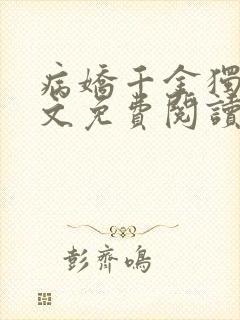 病嬌千金獨
文免費閱讀
彭齊鳴